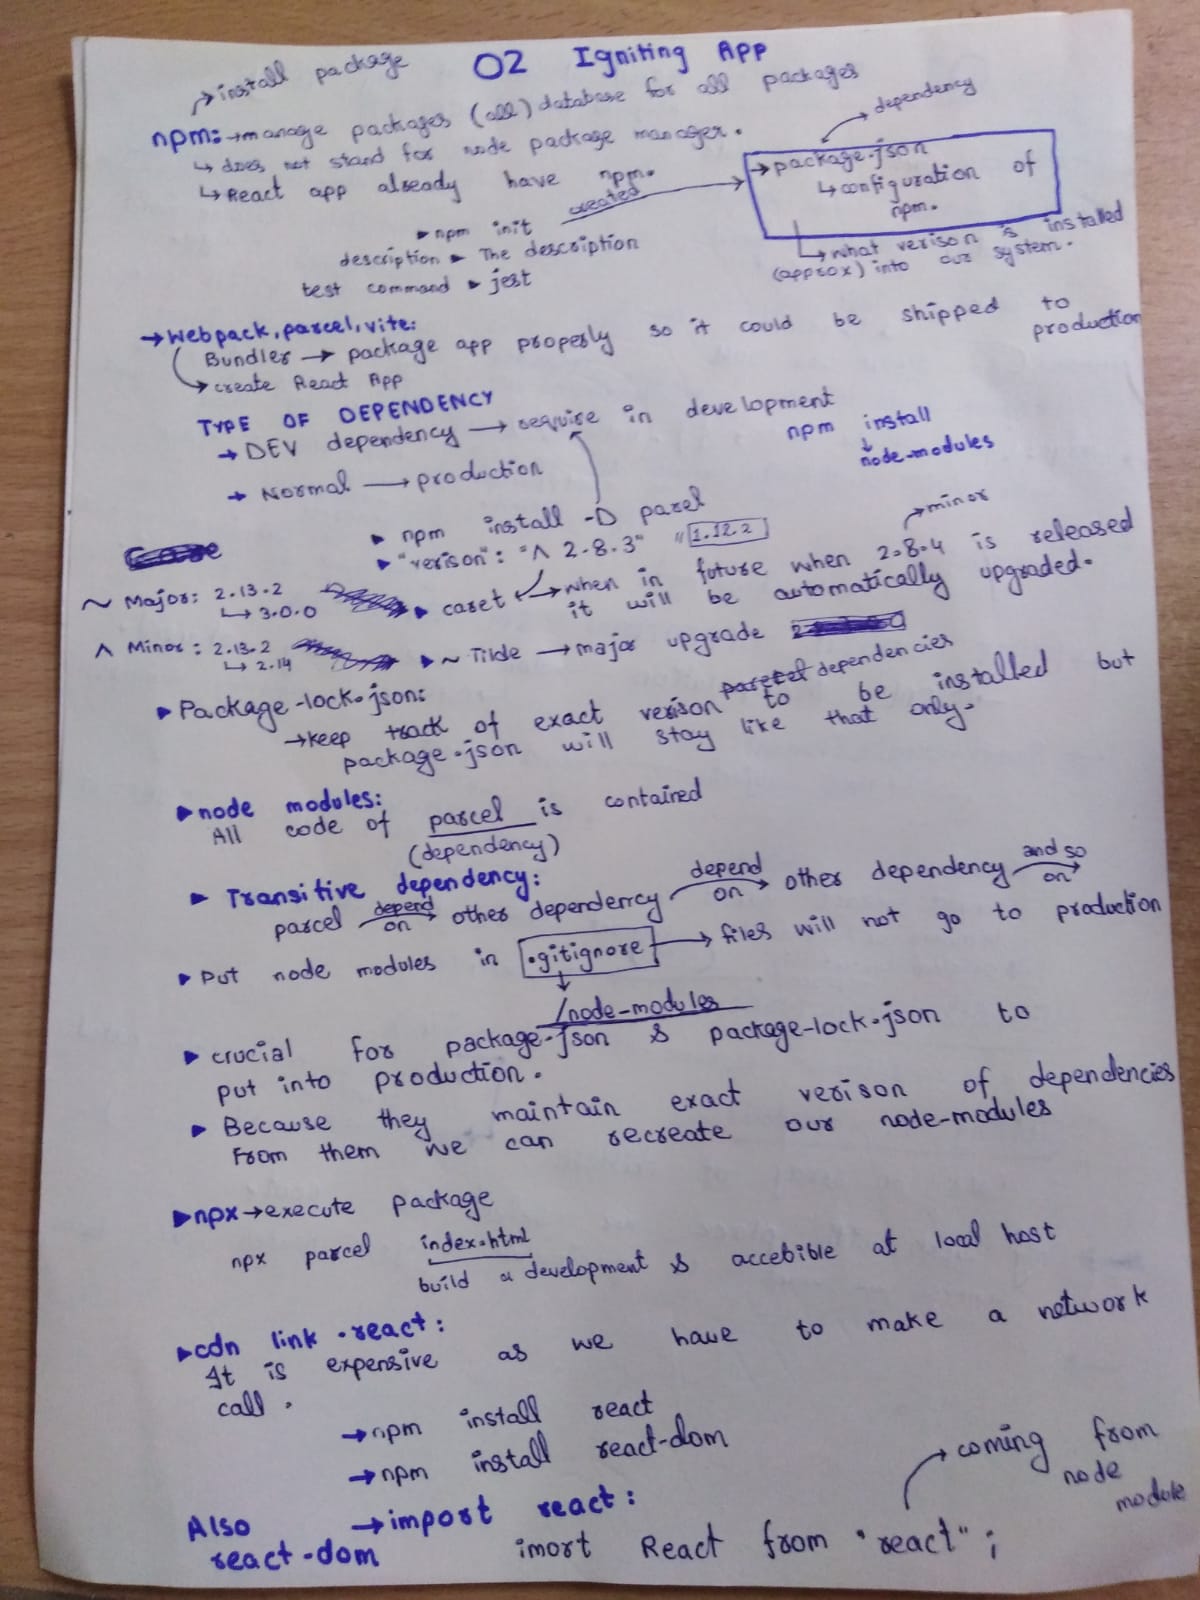 02 Igniting App
→ install package
npm: → manage packages (all) database for all packages
↳ does not stand for node package manager.
↳ React app already have npm.
dependency
→ package.json
↳ configuration of
npm.
▸ npm init created
↳ what verison is installed
(approx) into our system.
description ▸ The description
test command ▸ jest
→ Webpack, parcel, vite:
Bundler → package app properly so it could be shipped to
production
→ create React App
TYPE OF DEPENDENCY
→ DEV dependency → require in development
npm install
↓
node-modules
→ Normal → production
▸ npm install -D parel
▸ "verison": "^ 2.8.3" "1.12.2
→ minor
~ Major: 2.13.2
↳ 3.0.0
▸ caret → when in future when 2.8.4 is released
it will be automatically upgraded.
^ Minor: 2.13.2
↳ 2.14
▸ ~ Tilde → major upgrade
▸ Package-lock.json:
dependencies
→ keep track of exact verison to be installed but
package.json will stay like that only.
▸ node modules:
All code of parcel is contained
(dependency)
▸ Transitive dependency:
parcel depend on → other dependency depend on → other dependency and so on →
▸ Put node modules in .gitignore → files will not go to production
↓
/node-modules
▸ crucial for package-json & package-lock.json to
put into production.
▸ Because they maintain exact verison of dependencies
From them we can recreate our node-modules
▸ npx → execute package
npx parcel index.html
build a development & accebible at local host
▸ cdn link .react:
It is expensive as we have to make a network
call.
→ npm install react
→ npm install react-dom
→ coming from
node
module
Also → import react:
react-dom imort React from "react";